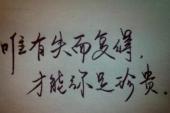 唯有失而复得，
才能弥足珍贵。